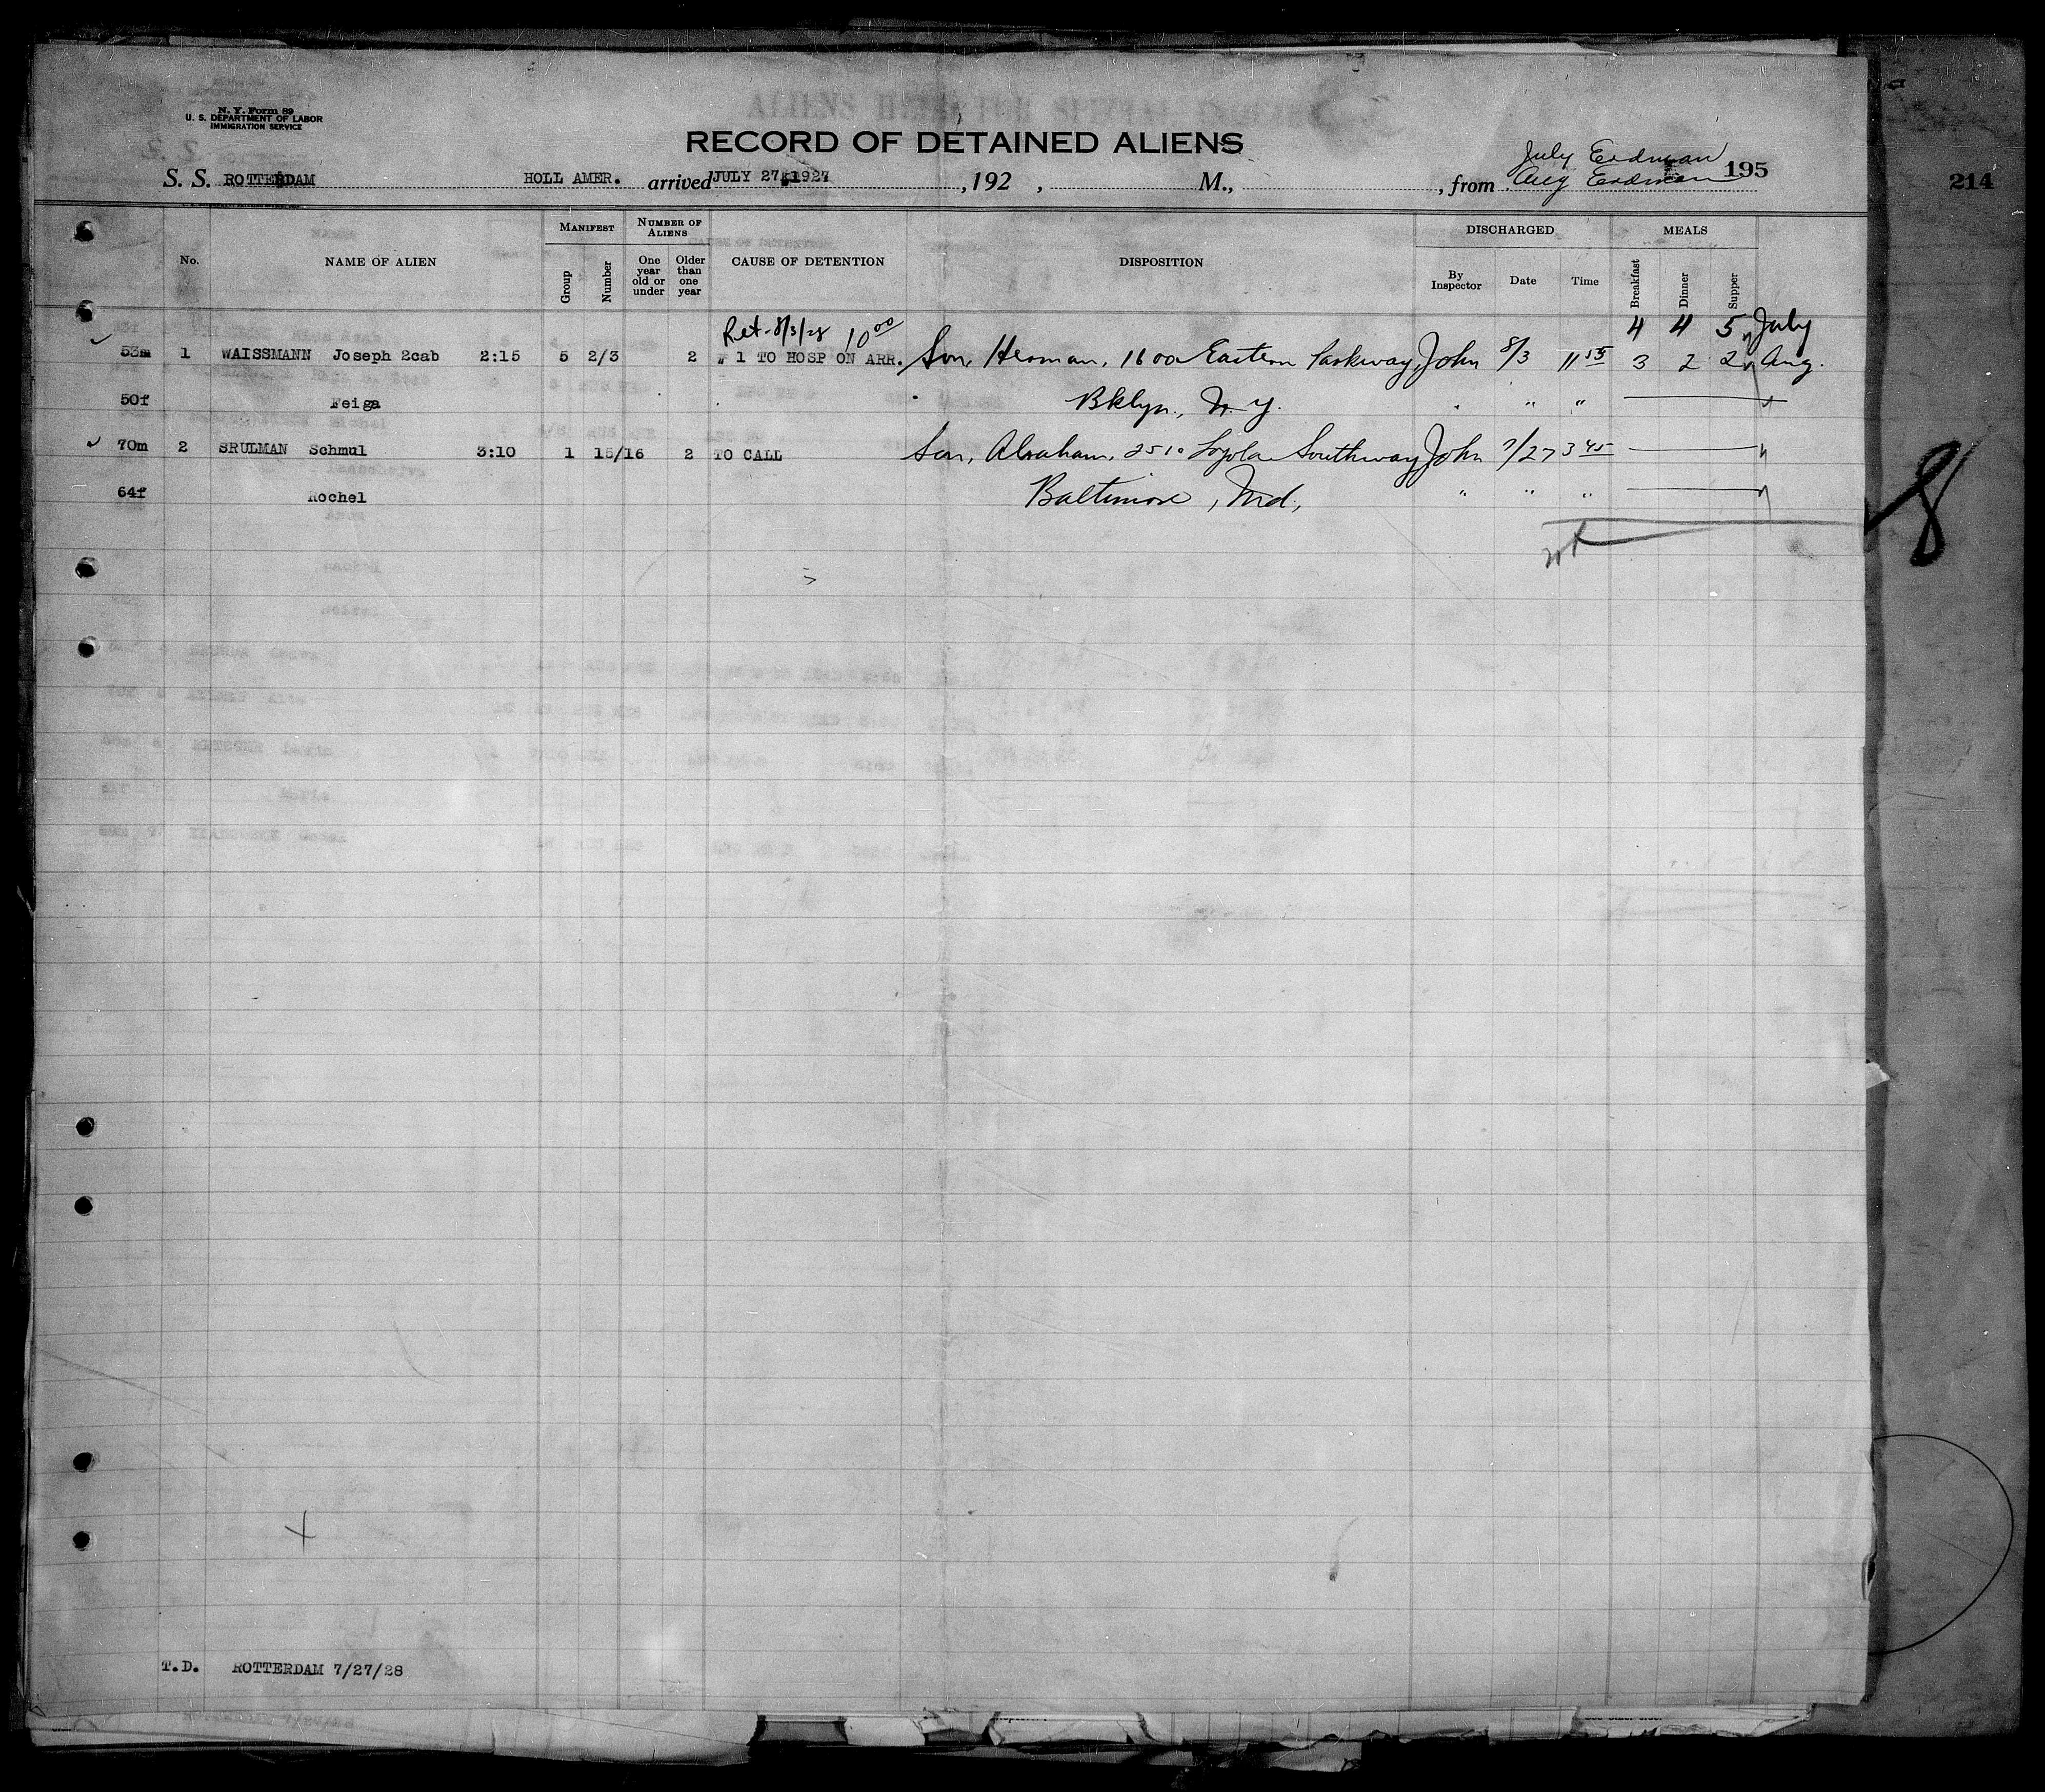 N. Y. Form 89
U. S. DEPARTMENT OF LABOR
IMMIGRATION SERVICE
RECORD OF DETAINED ALIENS
July Erdman
S. S. ROTTERDAM HOLL AMER. arrived JULY 27, 1927, 192 , M., , from Aug Erdman 195
214
No. NAME OF ALIEN MANIFEST Group Number NUMBER OF ALIENS One year old or under Older than one year CAUSE OF DETENTION DISPOSITION DISCHARGED By Inspector Date Time MEALS Breakfast Dinner Supper
Ret- 8/3/28 10 00 4 4 5 July
53m 1 WAISSMANN Joseph 2cab 2:15 5 2/3 2 # 1 TO HOSP ON ARR. Son, Herman, 1600 Eastern Parkway, John 8/3 11 55 3 2 2 Aug.
50f Feiga Bklyn., N. Y. " " "
70m 2 SRULMAN Schmul 3:10 1 15/16 2 TO CALL Son, Abraham, 2510 Loyola Southway John 7/27 3 45
64f Rochel Baltimore, Md, " " "
8
T.D. ROTTERDAM 7/27/28